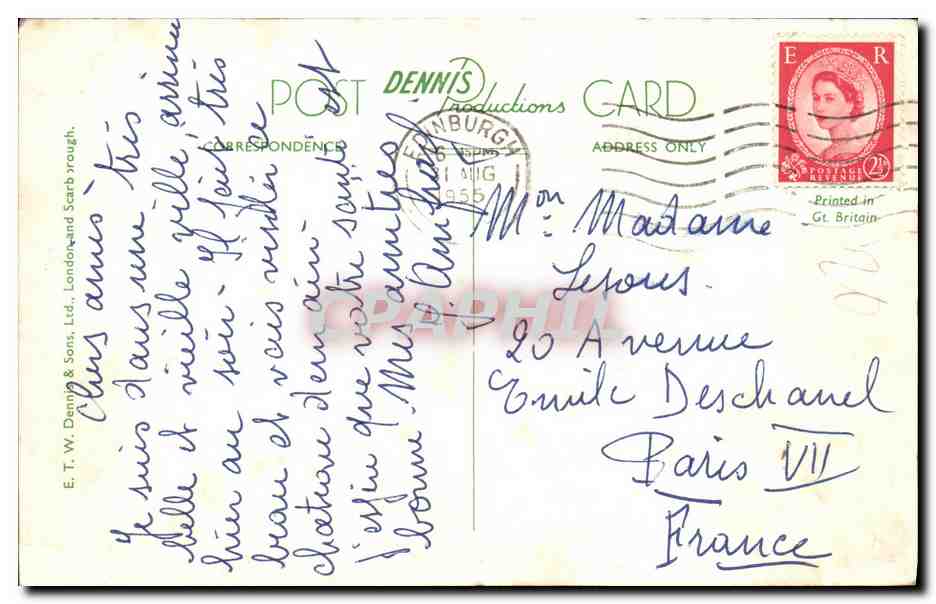 POST DENNIS Productions CARD
CORRESPONDENCE
ADDRESS ONLY
E. T. W. Dennis & Sons, Ltd., London and Scarborough.
Chers amis très
Je suis dans une très
belle et vieille ville, arrivée
hier au soir. Il fait très
beau et vais visiter ce
château demain
j'espère que votre santé est
bonne. Mes amitiés
EDINBURGH
6 15 PM
1 AUG
1955
E R
POSTAGE
REVENUE
2½D
Printed in
Gt. Britain
Mon Madame
Lesous.
20 Avenue
Emile Deschanel
Paris VII
France
CPAPHIL